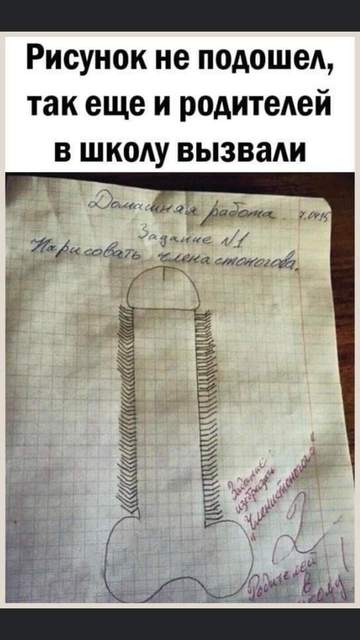 Рисунок не подошел,
так еще и родителей
в школу вызвали
Домашняя работа. 7.04.15
Задание №1
Нарисовать членастоногова.
Задание:
изобразить
"Членистоногая"
2
Родителей
в
школу!